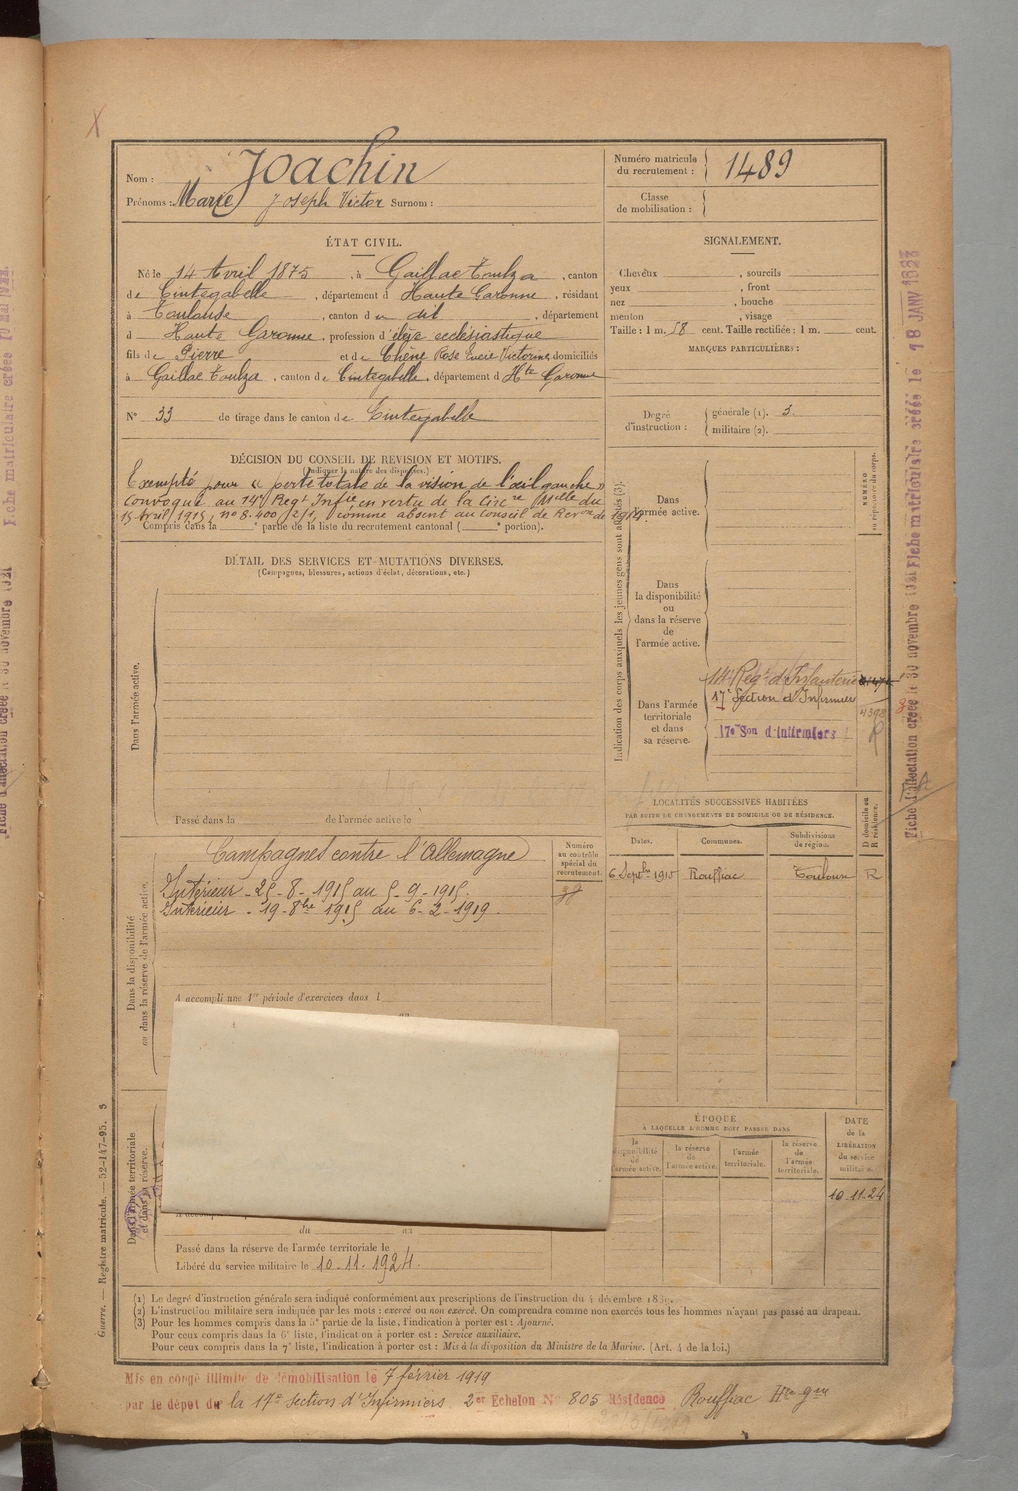 X
Nom : Joachin
Prénoms : Marie Joseph Victor Surnom :
Numéro matricule du recrutement : 1489
Classe de mobilisation :
ÉTAT CIVIL.
Né le 14 Avril 1875, à Gaillac Toulza, canton
de Cintegabelle, département d Haute Garonne, résidant
à Toulouse, canton d u dit, département
d Haute Garonne, profession d'élève ecclésiastique
fils de Pierre et de Chêne Rose Lucie Victorine, domiciliés
à Gaillac Toulza, canton de Cintegabelle, département d Hte Garonne
N° 33 de tirage dans le canton de Cintegabelle
SIGNALEMENT.
Cheveux , sourcils
yeux , front
nez , bouche
menton , visage
Taille : 1 m. 58 cent. Taille rectifiée : 1 m. cent.
MARQUES PARTICULIÈRES :
Degré d'instruction : générale (1). 3.
militaire (2).
DÉCISION DU CONSEIL DE REVISION ET MOTIFS.
(Indiquer la nature des dispenses.)
Exempté pour « perte totale de la vision de l'œil gauche »
Convoqué au 14e Regt Infie en vertu de la Circre Mlle du
15 Avril 1915, no 8.400 /2/1, comme absent au Conseil de Revon de 1914.
Compris dans la e partie de la liste du recrutement cantonal ( e portion).
DÉTAIL DES SERVICES ET MUTATIONS DIVERSES.
(Campagnes, blessures, actions d'éclat, décorations, etc.)
Dans l'armée active.
Passé dans la de l'armée active le
Indication des corps auxquels les jeunes gens sont affectés (3).
Dans l'armée active.
NUMÉRO au répertoire du corps.
Dans la disponibilité ou dans la réserve de l'armée active.
Dans l'armée territoriale et dans sa réserve.
14e Regt d'Infanterie
17e Section d'Infirmiers
4398
17e Son d'infirmiers
LOCALITÉS SUCCESSIVES HABITÉES
PAR SUITE DE CHANGEMENTS DE DOMICILE OU DE RÉSIDENCE.
Dates. Communes. Subdivisions de région. D domicile ou R résidence.
6 Septbre 1915 Rouffiac Toulouse R
Dans la disponibilité ou dans la réserve de l'armée active.
Campagnes contre l'Allemagne
Numéro au contrôle spécial du recrutement.
Intérieur - 25-8-1915 au 5-9-1915.
Intérieur - 19-8bre 1915 au 6-2-1919.
A accompli une 1re période d'exercices dans l
au
Dans l'armée territoriale et dans sa réserve.
du au
Passé dans la réserve de l'armée territoriale le
Libéré du service militaire le 10-11-1924.
ÉPOQUE
À LAQUELLE L'HOMME DOIT PASSER DANS
la disponibilité de l'armée active. la réserve de l'armée active. l'armée territoriale. la réserve de l'armée territoriale.
DATE de la LIBÉRATION du service militaire.
10.11.24
(1) Le degré d'instruction générale sera indiqué conformément aux prescriptions de l'instruction du 4 décembre 1889.
(2) L'instruction militaire sera indiquée par les mots : exercé ou non exercé. On comprendra comme non exercés tous les hommes n'ayant pas passé au drapeau.
(3) Pour les hommes compris dans la 5e partie de la liste, l'indication à porter est : Ajourné.
Pour ceux compris dans la 6e liste, l'indication à porter est : Service auxiliaire.
Pour ceux compris dans la 7e liste, l'indication à porter est : Mis à la disposition du Ministre de la Marine. (Art. 4 de la loi.)
Guerre. — Registre matricule. — 52-147-95. 3
Mis en congé illimité de démobilisation le 7 février 1919
par le dépôt de la 17e Section d'Infirmiers 2er Echelon N° 805 Résidence Rouffiac Hte Gne
Fiche matriculaire créée le 18 JANV 1923
Fiche d'affectation créée le 30 novembre 1921